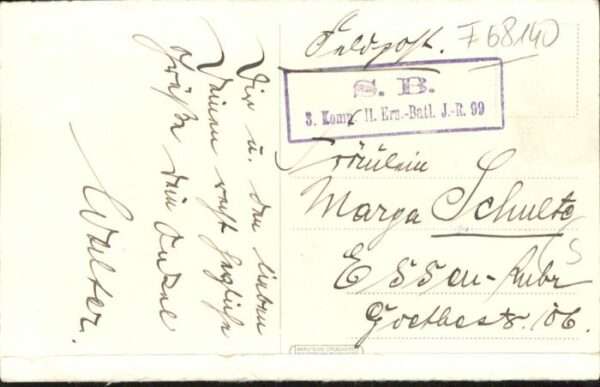 Dir u. den lieben
Deinen recht herzliche
Grüße dein Onkel
Walter.
Feldpost.
F 68140
S. B.
3. Komp. II. Ers.-Batl. J.-R. 99
Fräulein
Marga Schultz
Essen-Ruhr
Goethestr. 106.